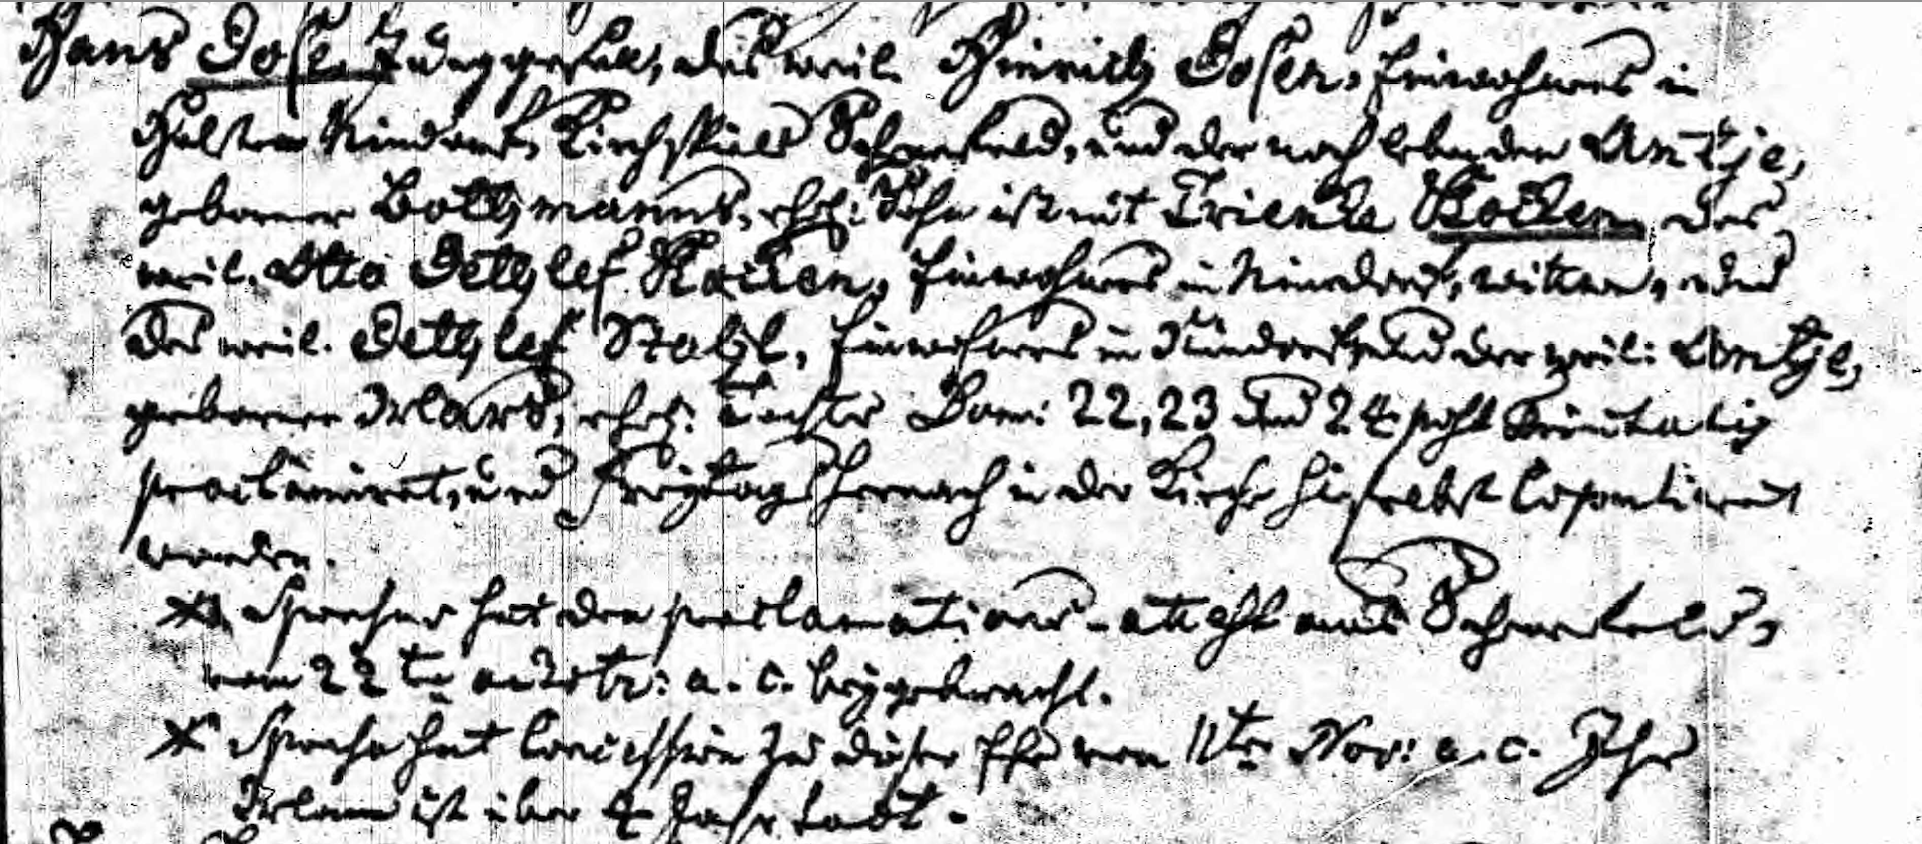 Hans Dose, Junggesell, des weil. Hinrich Dosen, Einwohners in
Holsten Niendorf, Kirchspiels Schenefeld, und der noch lebenden Antje,
geborner Bothmanns, ehel: Sohn ist mit Trienke Kocken des
weil. Otto Dethlef Kocken, Einwohners in Niendorf, Witwe,
des weil. Dethlef Stahl, Einwohners in Niendorf, und der weil: Antje,
geborner Mlars, ehel: Tochter Dom: 22, 23 und 24 post Trinitatis
proclamiret, und Freytags hernach in der Kirche hieselbst Copuliret
worden.
* Sponsus hat den proclamations-attest aus Schenefeld,
vom 22ten octobr: a. c. beygebracht.
* Sponsa hat Concession zu dieser Ehe vom 11ten Nov: a. c. Ihr
Mann ist über 4 Jahr todt.